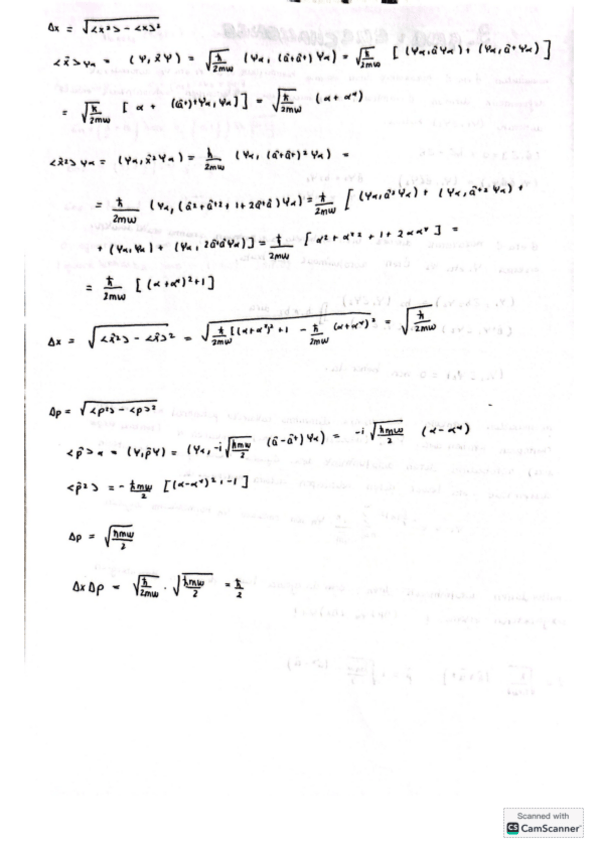 Δx = √(<x²> - <x>²)
<x̂>ψα = (ψ, x̂ψ) = √(ħ/2mω) (ψα, (â+â⁺)ψα) = √(ħ/2mω) [(ψα,âψα) + (ψα,â⁺ψα)]
= √(ħ/2mω) [α + ((â⁺)⁺ψα,ψα)] = √(ħ/2mω) (α+α*)
<x̂²>ψα = (ψα,x̂²ψα) = ħ/2mω (ψα, (â+â⁺)²ψα) =
= ħ/2mω (ψα, (â²+â⁺²+1+2â⁺â)ψα) = ħ/2mω [(ψα,â²ψα) + (ψα,â⁺²ψα) +
+ (ψα,ψα) + (ψα, 2â⁺âψα)] = ħ/2mω [α² + α*² + 1 + 2αα*] =
= ħ/2mω [(α+α*)²+1]
Δx = √(<x̂²> - <x̂>²) = √(ħ/2mω [(α+α*)²+1 - ħ/2mω (α+α*)²) = √(ħ/2mω)
Δp = √(<p²> - <p>²)
<p̂>α = (ψ,p̂ψ) = (ψα, -i√(ħmω/2) (â-â⁺)ψα) = -i√(ħmω/2) (α-α*)
<p̂²> = - ħmω/2 [(α-α*)² -1]
Δp = √(ħmω/2)
ΔxΔp = √(ħ/2mω) · √(ħmω/2) = ħ/2
Scanned with
CS CamScanner